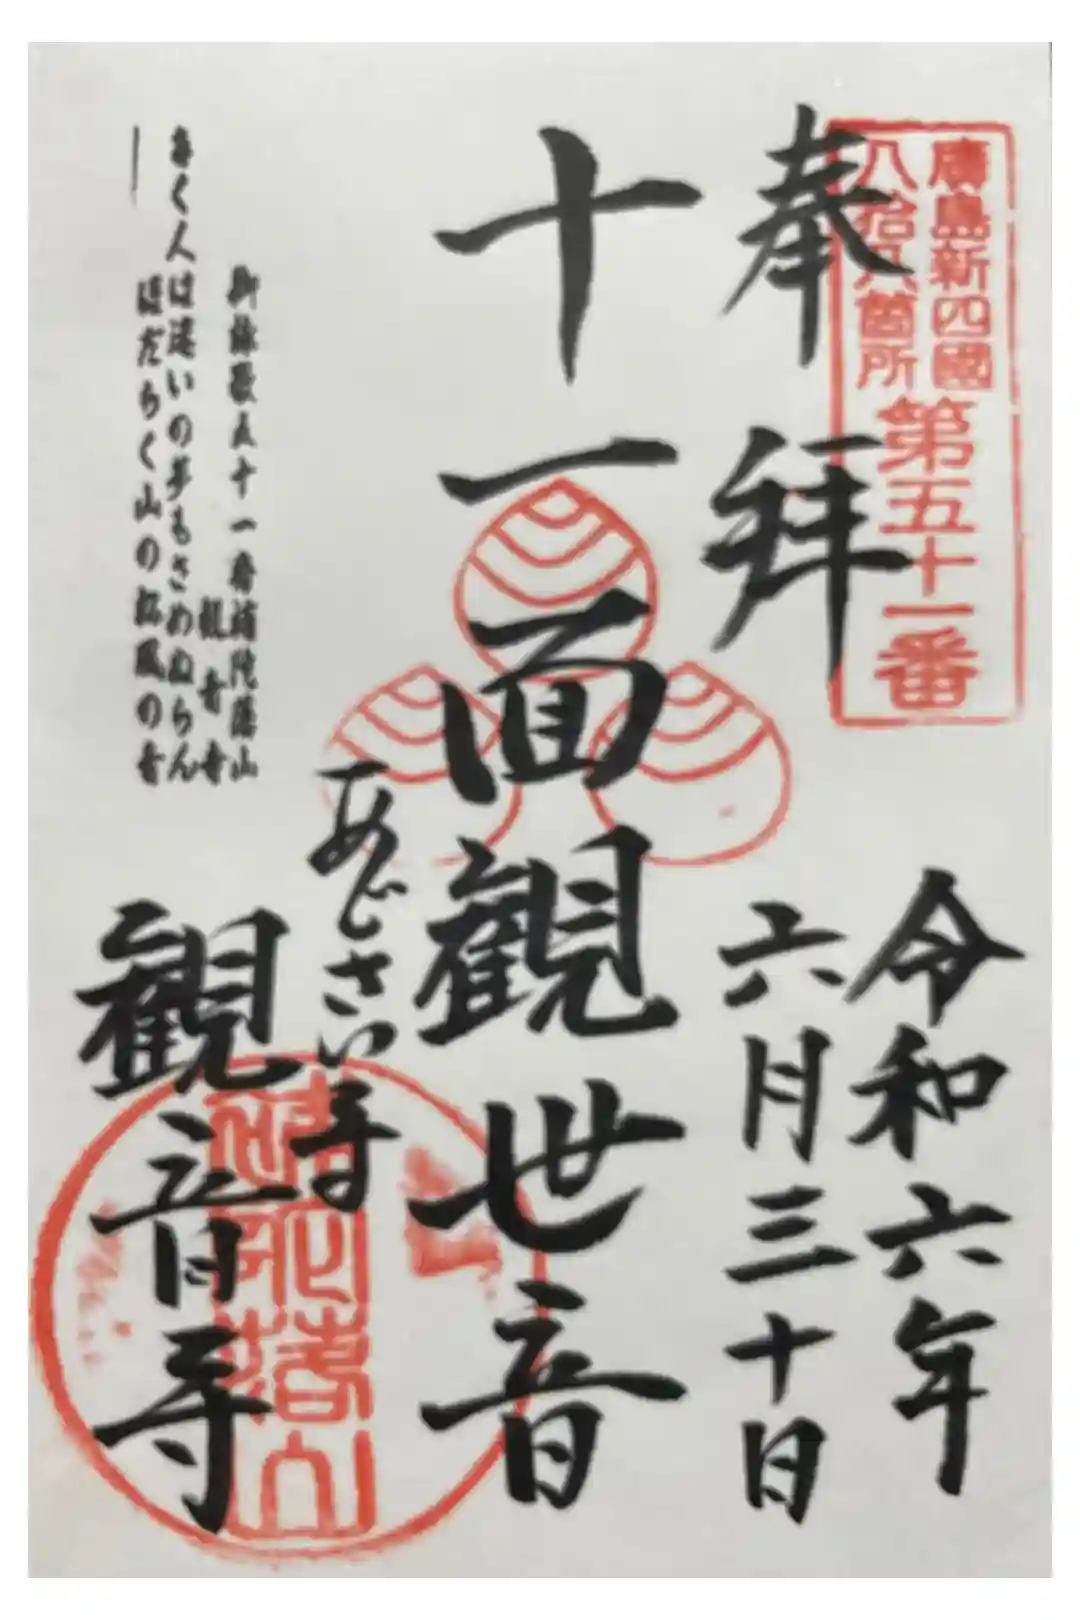 廣島新四國
八拾八箇所
第五十一番
奉拝
令和六年
六月三十日
十一面観世音
あじさい寺
観音寺
御詠歌五十一番補陀落山
観音寺
きく人は迷いの夢もさめぬらん
ほだらく山の松風の音
補陀落山